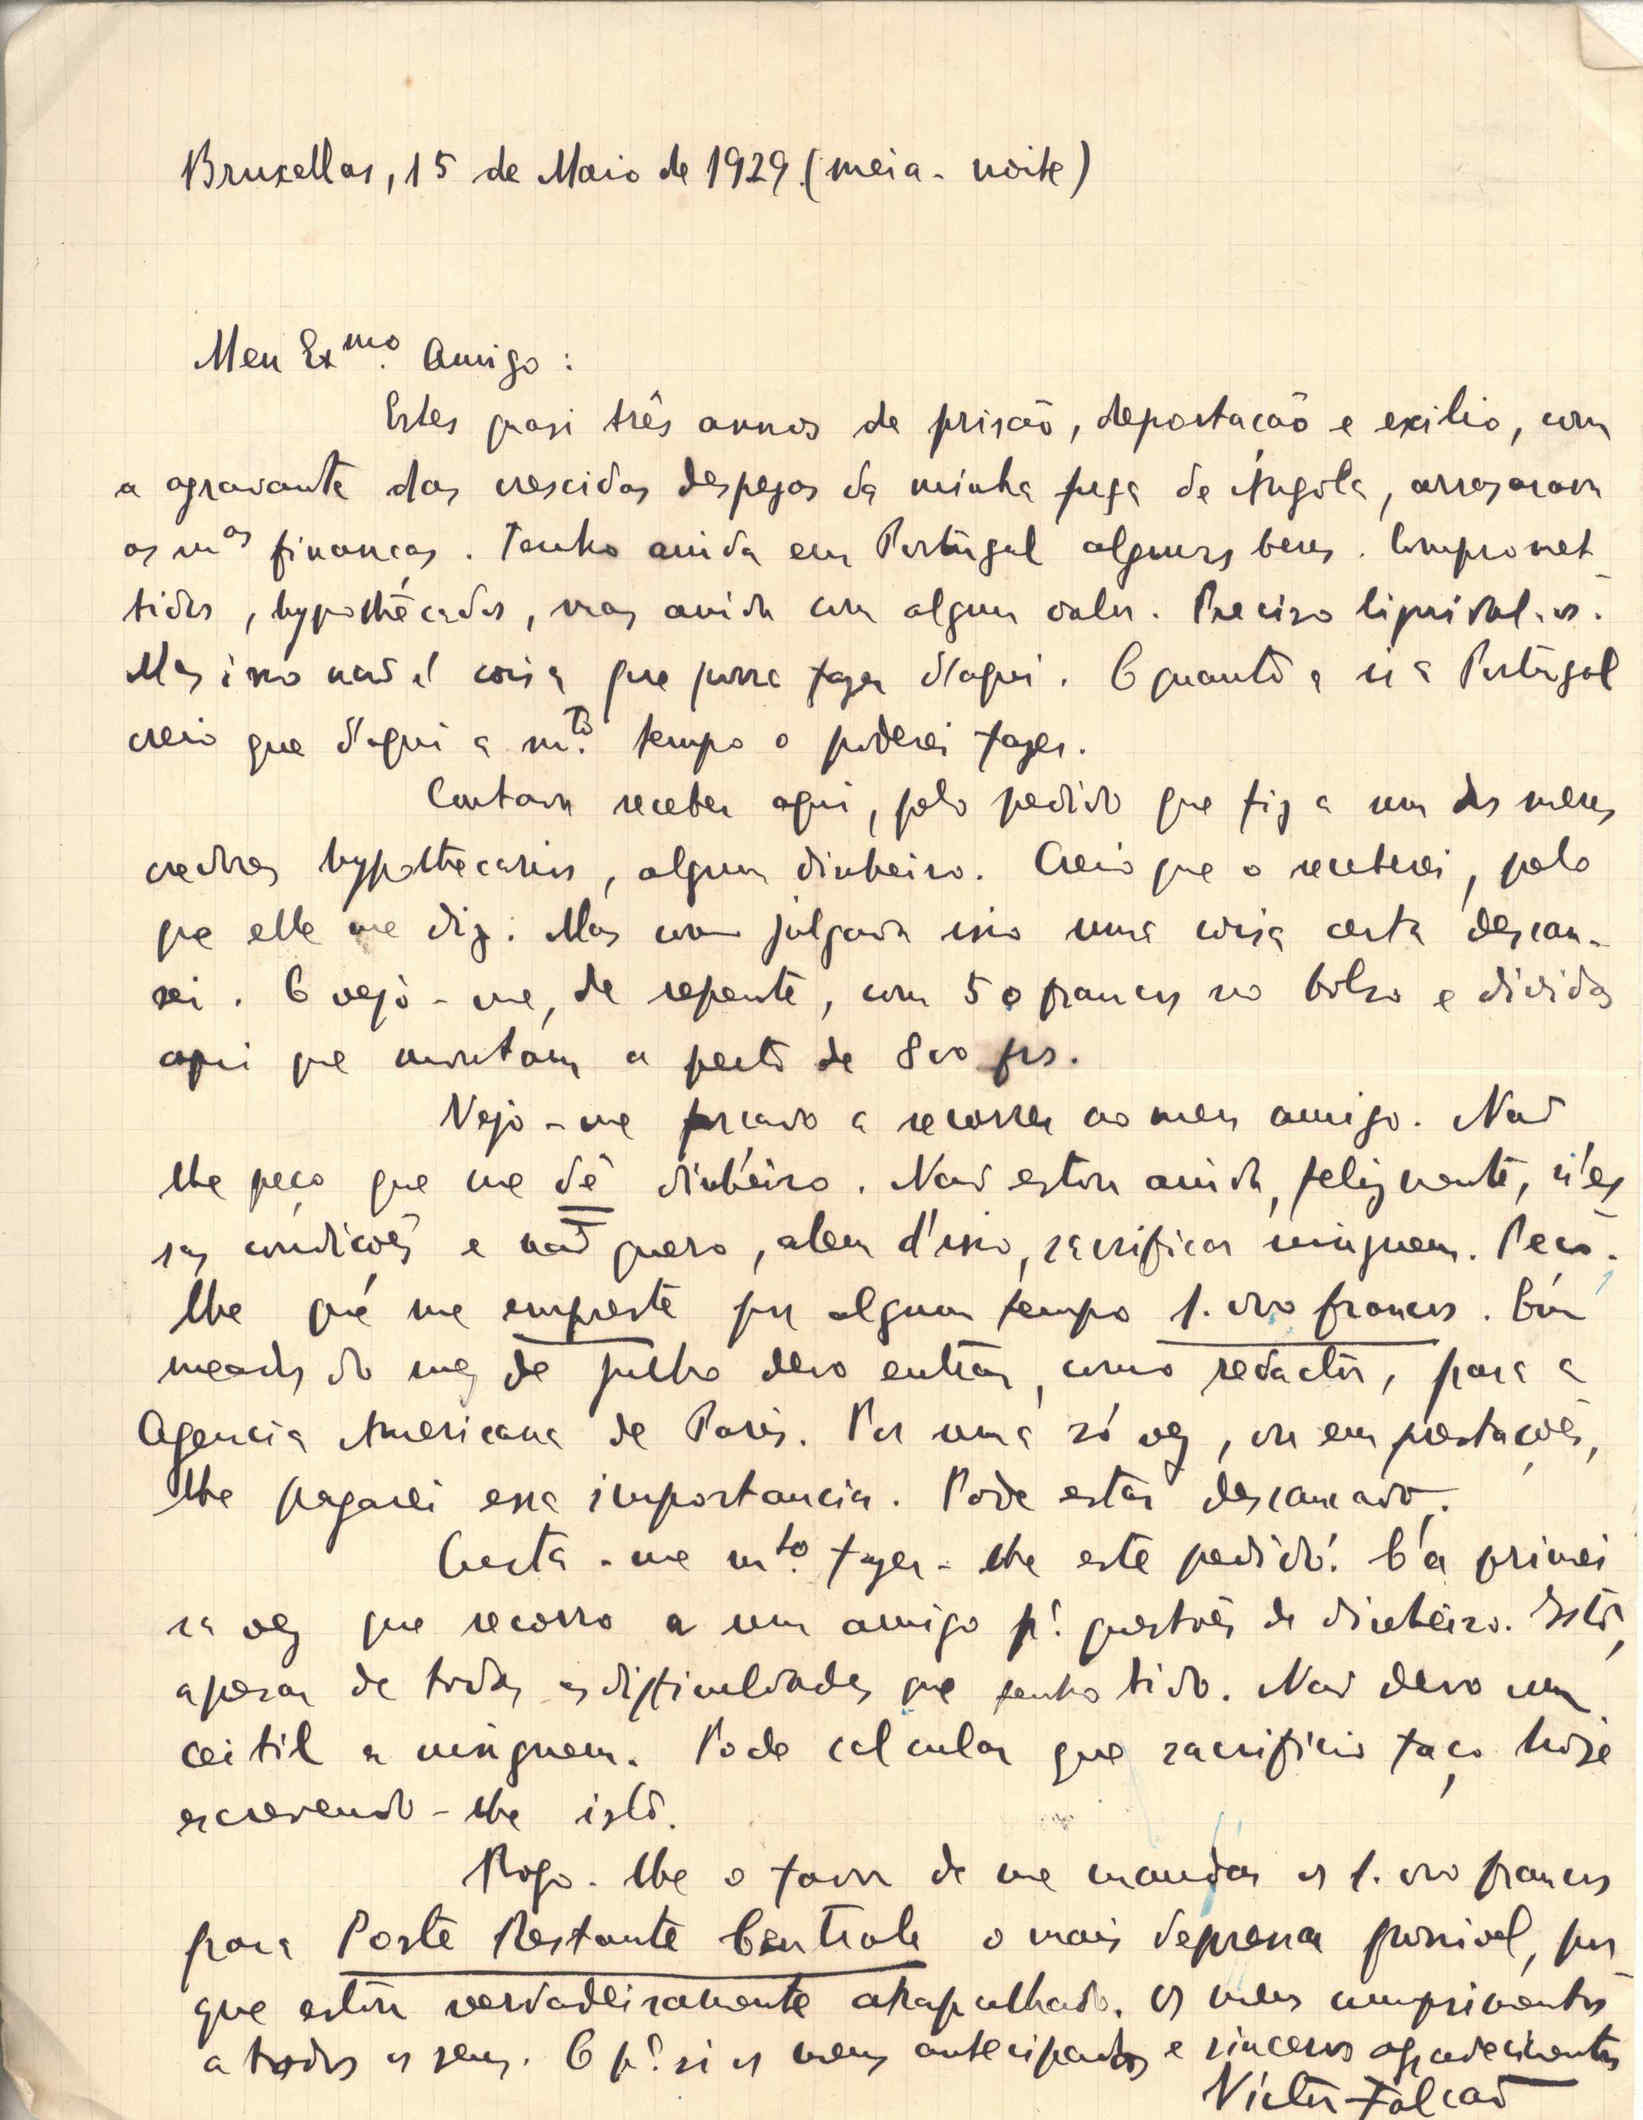 Bruxellas, 15 de Maio de 1929 (meia-noite)
Meu Exmo. Amigo:
Estes quasi três annos de prisão, deportação e exilio, com
a agravante das crescidas despezas da minha fuga de Angola, arrasaram
as mas finanças. Tenho ainda em Portugal alguns bens. Compromet-
tidos, hypothécados, mas ainda com algum valor. Preciso liquidal-os.
Mas isso não é coisa que possa fazer d'aqui. E quanto a ir a Portugal
creio que d'aqui a mto. tempo o poderei fazer.
Contava receber aqui, pelo pedido que fiz a um dos meus
credores hypothecarios, algum dinheiro. Creio que o receberei, pelo
que elle me diz. Mas como julgava isso uma coisa certa descan-
sei. E vejo-me, de repente, com 50 francos no bolso e dividas
aqui que montam a perto de 800 frs.
Vejo-me forçado a recorrer ao meu amigo. Não
lhe peço que me dê dinheiro. Não estou ainda, felizmente, n'es
sas condições e não quero, alem d'isso, sacrificar ninguem. Peço-
lhe que me empreste por algum tempo 1.000 francos. Em
meados do mez de julho devo entrar, como redactor, para a
Agencia Americana de Paris. Por uma só vez, ou em prestações,
lhe pagarei essa importancia. Pode estar descançado.
Custa-me mto. fazer-lhe este pedido. E' a primei
ra vez que recorro a um amigo pa. questões de dinheiro. Isto,
apesar de todas as difficuldades que tenho tido. Não devo um
ceitil a ninguem. Pode calcular que sacrificio faço hoje
escrevendo-lhe isto.
Rogo-lhe o favor de me mandar os 1.000 francos
para Poste Restante Centrale o mais depressa possivel, por
que estou verdadeiramente atrapalhado. Os meus cumprimentos
a todos os seus. E pa. si os meus antecipados e sinceros agradecimentos
Victor Falcão